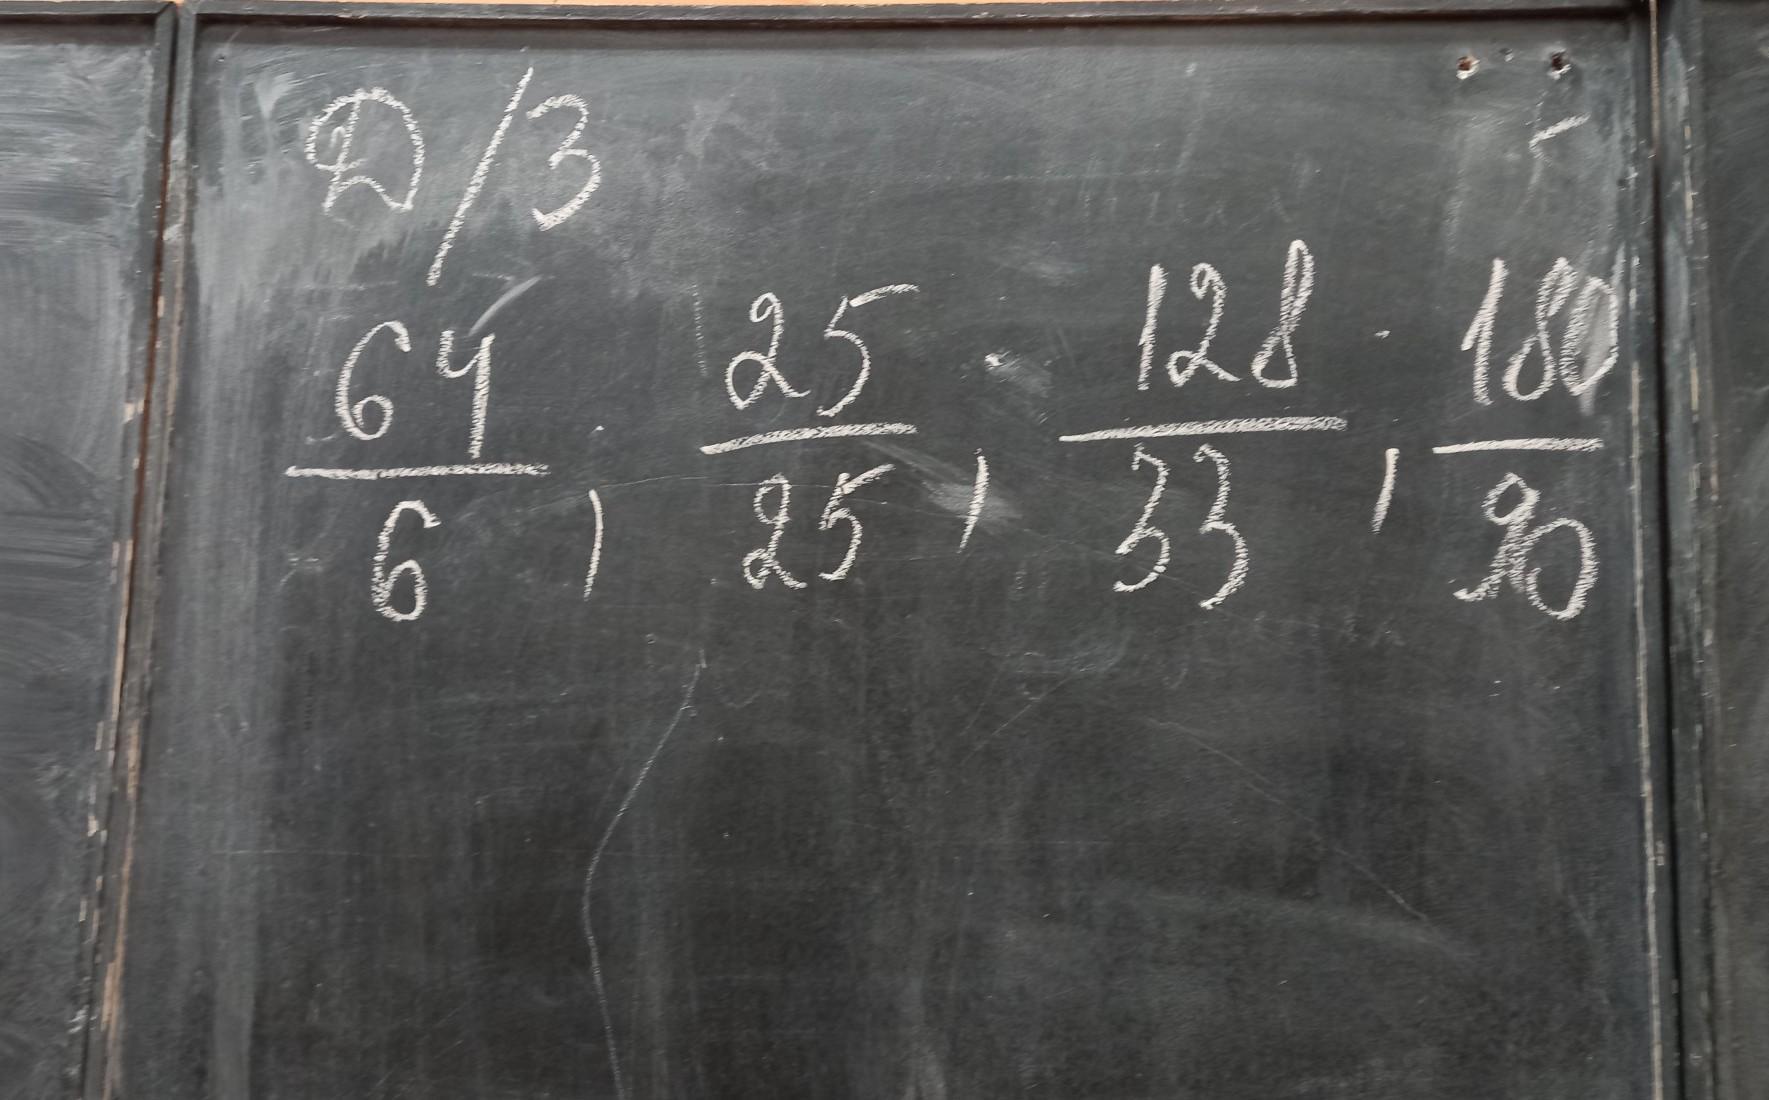 Д/З
64/6, 25/25, 128/33, 180/90